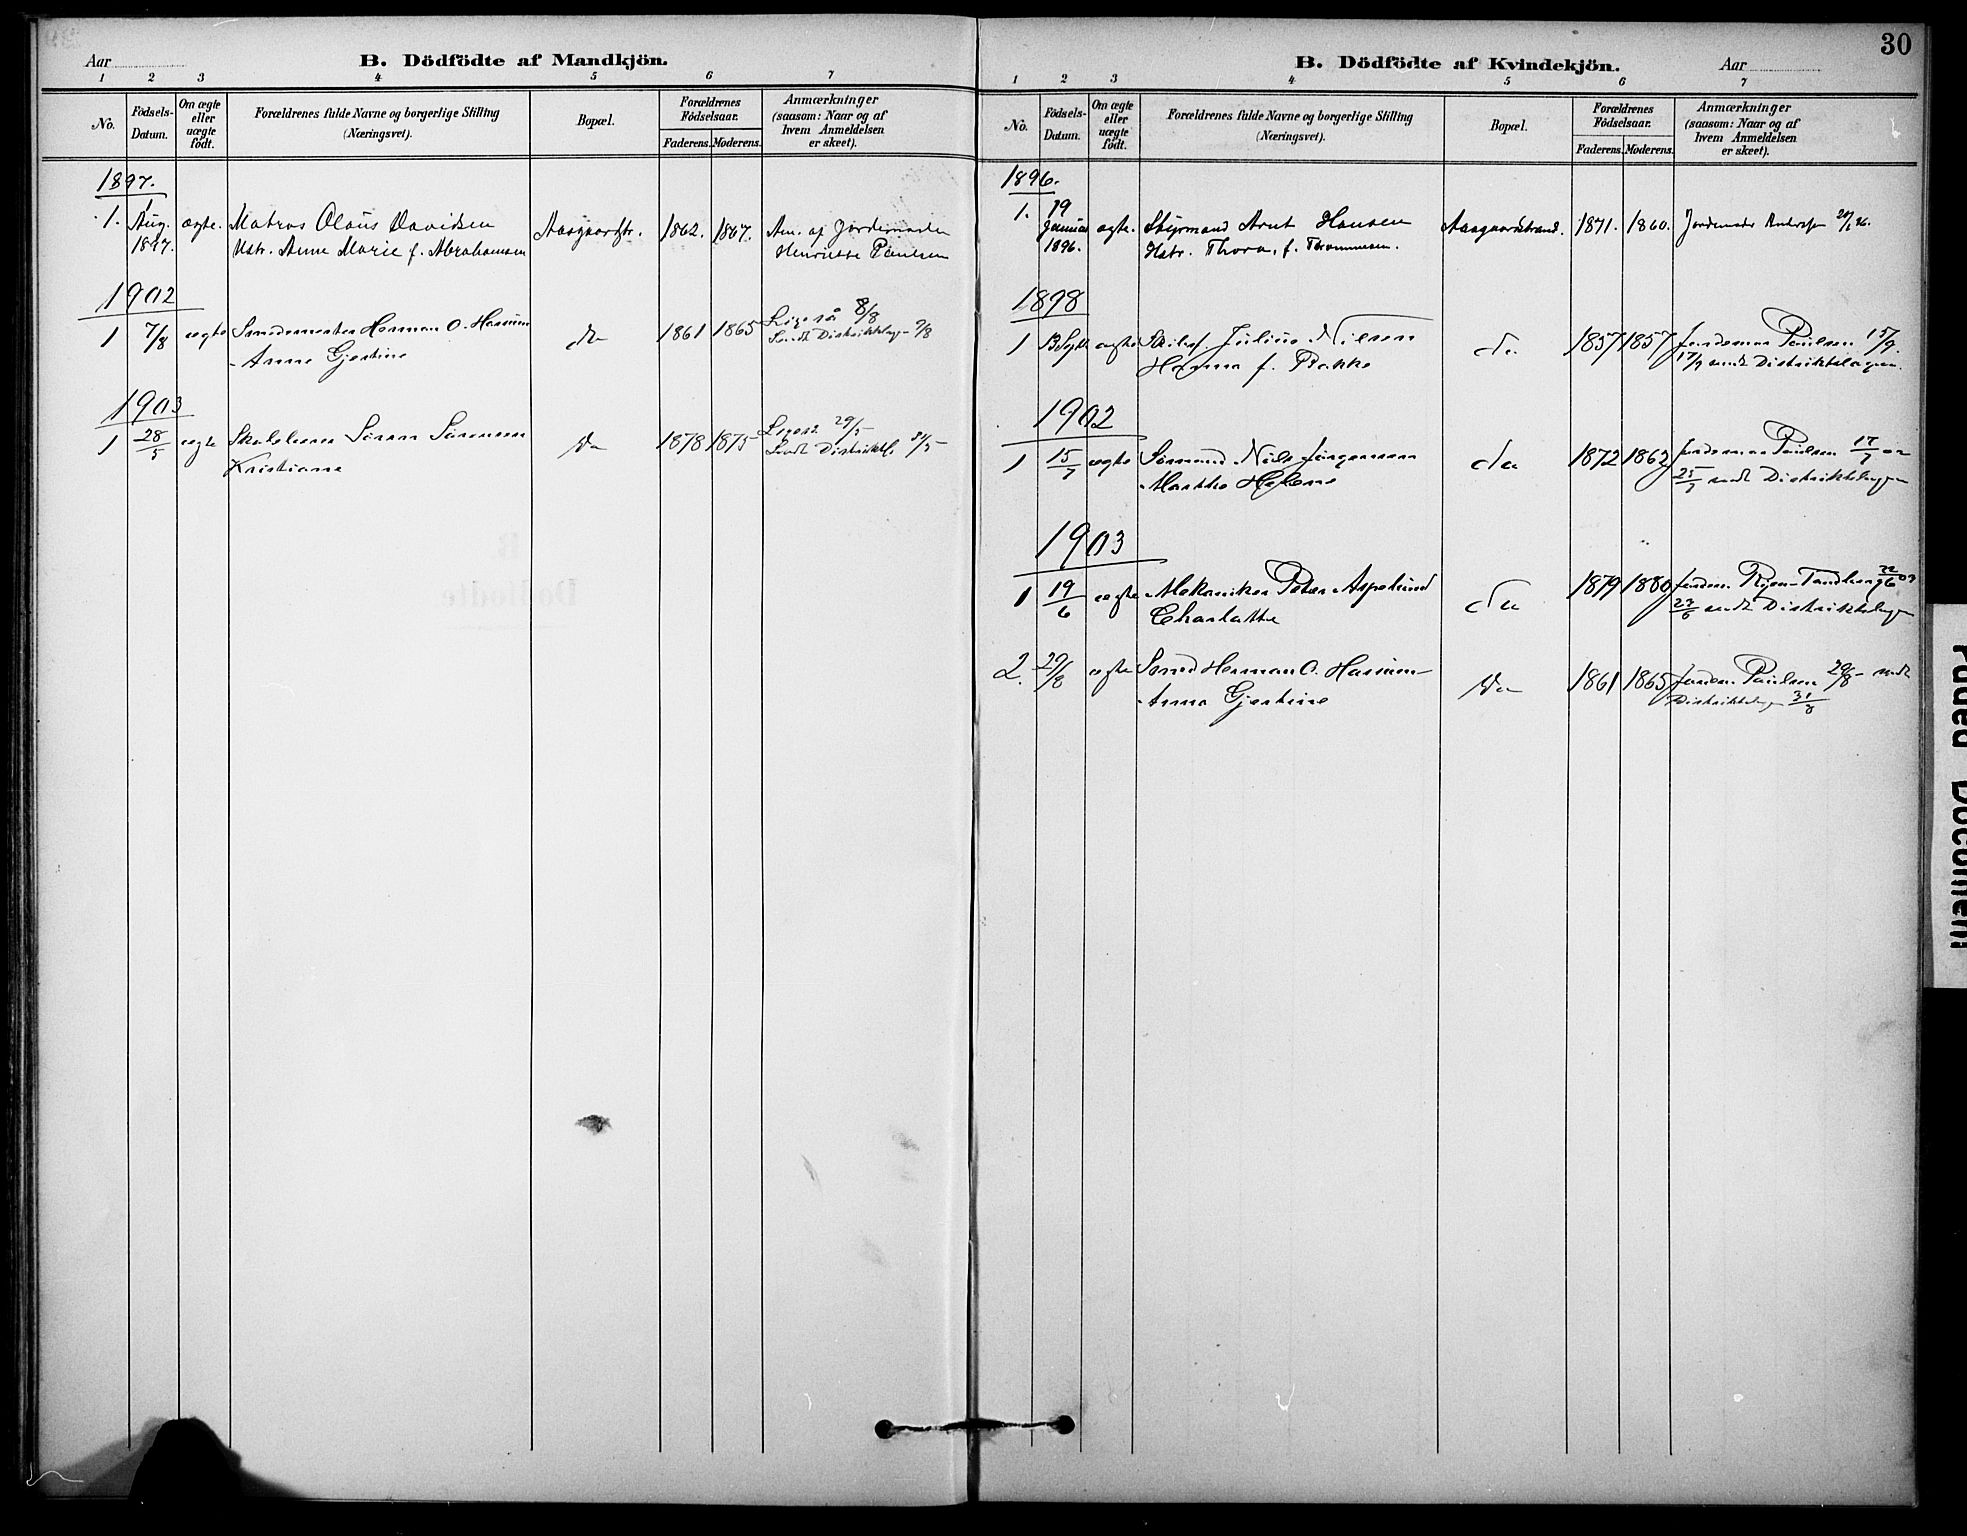 Aar
B. Dödfödte af Mandkjön.
1 2 3 4 5 6 7
No.
Födsels-
Datum.
Om ægte
eller
uægte
födt.
Forældrenes fulde Navne og borgerlige Stilling
(Næringsvei).
Bopæl.
Forældrenes
Födselsaar.
Faderens. Moderens.
Anmærkninger
(saasom: Naar og af
hvem Anmeldelsen
er skeet).
1897.
1. 1 Aug. 1897. ægte. Matros Olaus Davidsen Aasgaardstr. 1862. 1867. Anm. af Jordemoder
Hstr. Anne Marie f. Abrahamsen Henriette Paulsen
1902
1 7/8 ægte Smedemester Herman O. Hansen do 1861 1865 Ligeså 8/8
Anne Gjertine Sendt Distriktslæg 9/8
1903
1 28/5 ægte Søren Sørensen do 1878 1875 29/5
Kristiane Sendt Distriktsl.
30
B. Dödfödte af Kvindekjön.
Aar
1 2 3 4 5 6 7
No.
Födsels-
Datum.
Om ægte
eller
uægte
födt.
Forældrenes fulde Navne og borgerlige Stilling
(Næringsvei).
Bopæl.
Forældrenes
Födselsaar.
Faderens. Moderens.
Anmærkninger
(saasom: Naar og af
hvem Anmeldelsen
er skeet).
1896.
1. 19 Januar 1896. ægte. Styrmand Arnt Hansen Aasgaardstrand. 1871. 1860. Jordemoder
Hstr. Thora, f. Thommesen.
1898
1 13 Sept ægte Julius Nilsen do 1857 1857 Jordemor Paulsen 15/9.
Hanna f. Bakke 17/9 sendt Distriktslægen.
1902
1 15/7 ægte Sømand Niels Jørgensen do 1872 1862 Jordemor Paulsen 17/7 og
Marthe Helene 25/7 sendt Distriktslægen
1903
1 19/6 ægte Mekaniker Peter Aspelund do 1879 1880 Jordem. 22/6 og
Charlotte 23/6 sendt Distriktslægen
2. 29/8 ægte Smed Herman O. Hansen do 1861 1865 Jordem. Paulsen 29/8 sendt
Anne Gjertine Distriktslægen 31/8